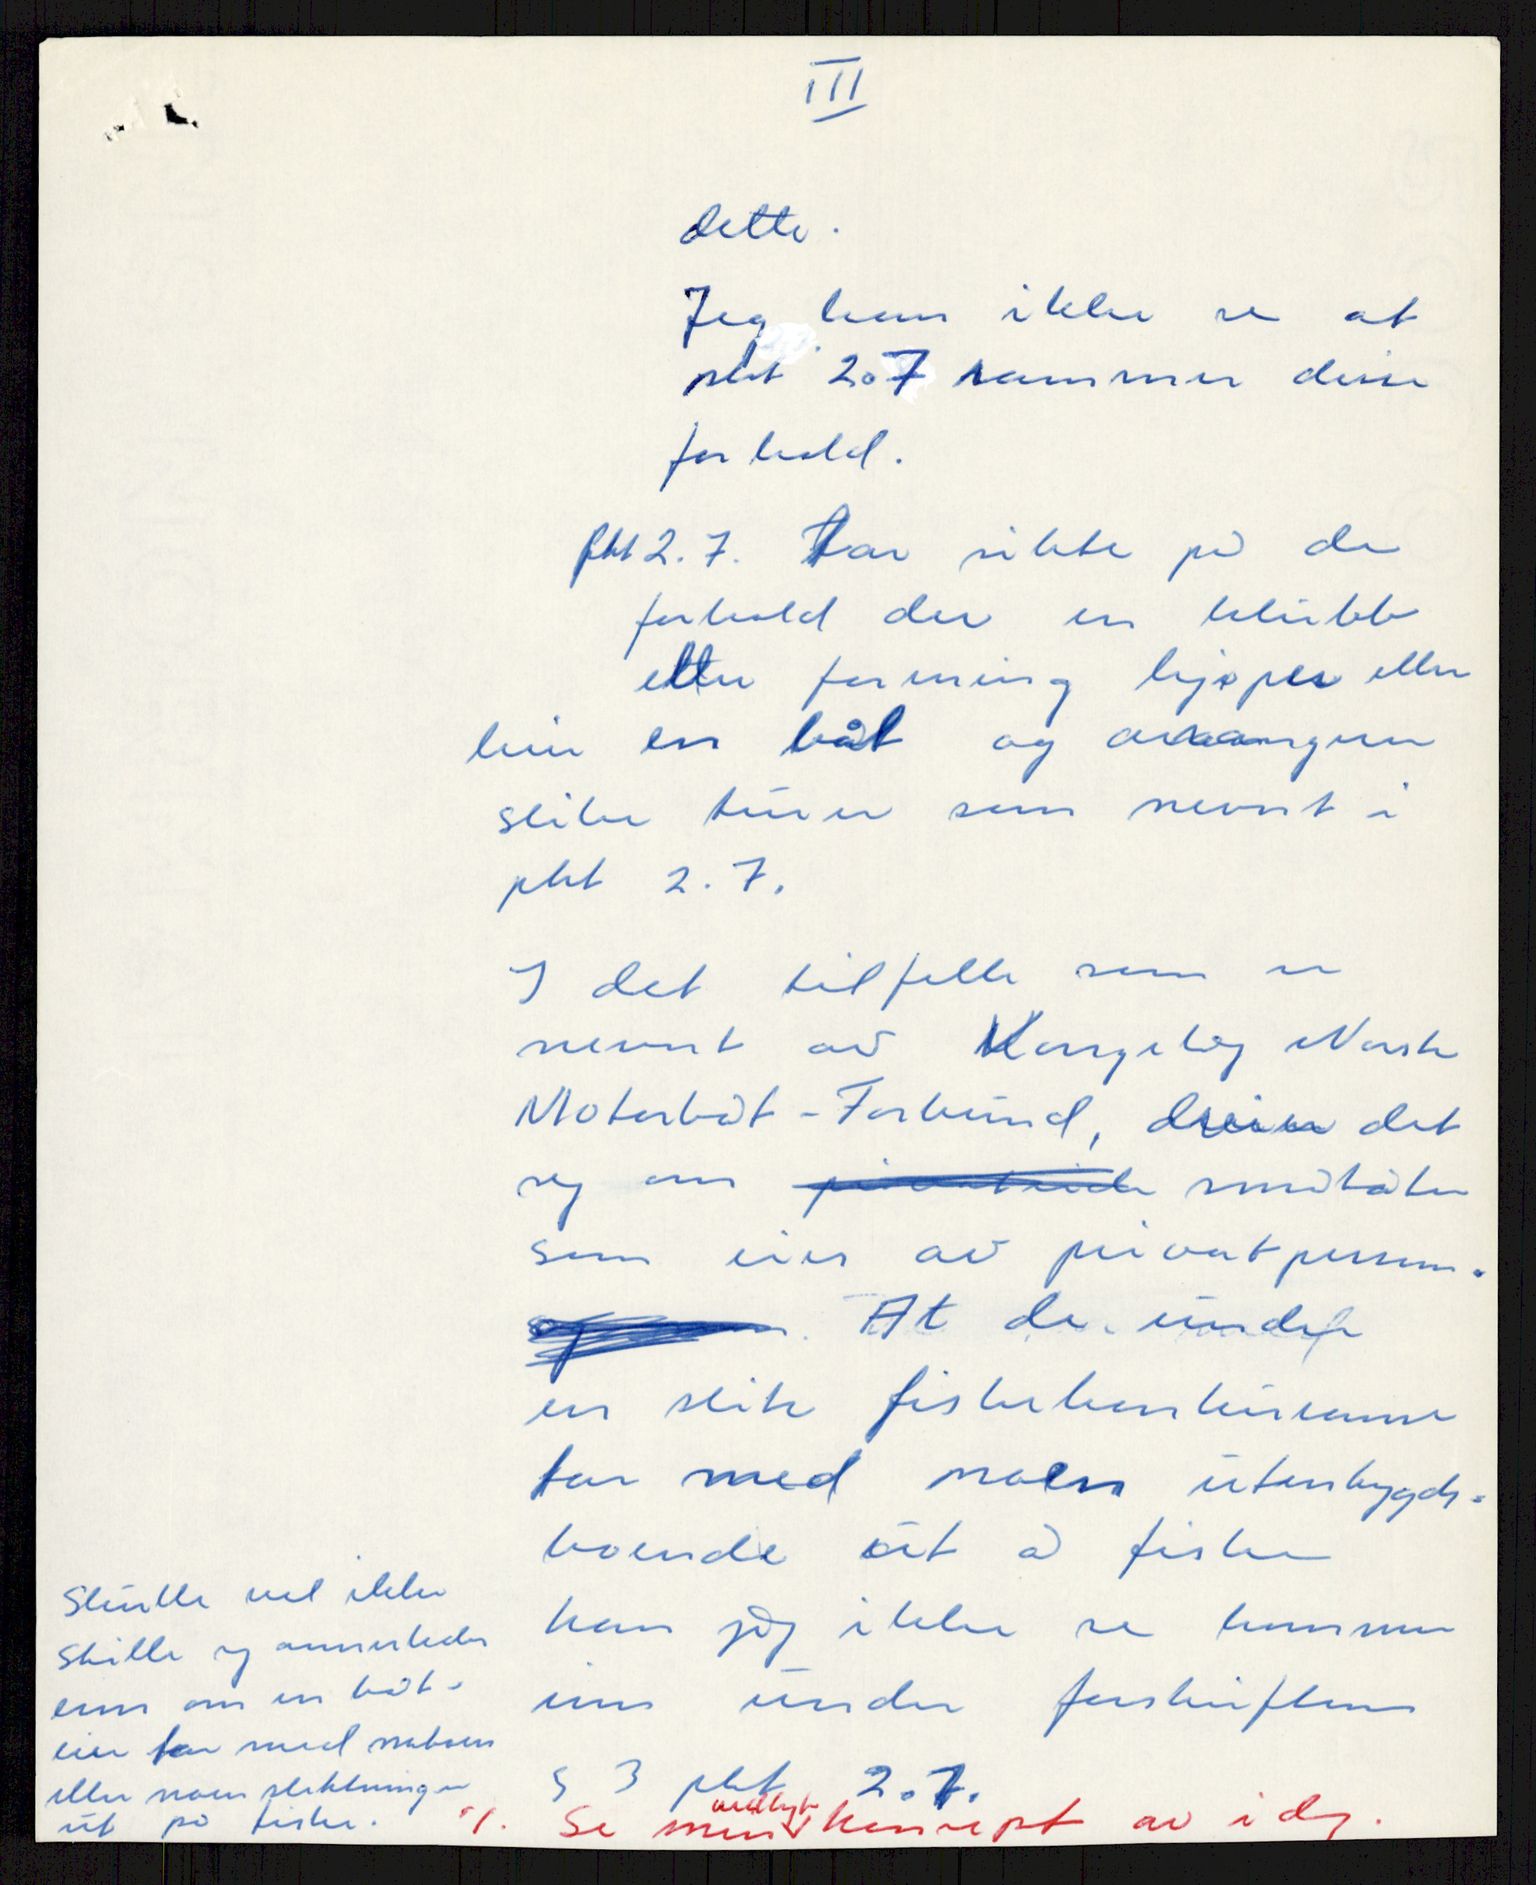 III
dette.
Jeg kan ikke se at
pkt 2.7 rammer disse
forhold.
pkt 2.7. tar sikte på de
forhold der en klubb
eller forening kjøper eller
leier en båt og arrangerer
slike turer som nevnt i
pkt 2.7.
I det tilfelle som er
nevnt av Kongelig Norsk
Motorbåt-Forbund, dreier det
seg om småbåter
som eies av privatperson.
At de under
en slik fiskekonkurranse
tar med noen utenbygds-
boende ut å fiske
kan jeg ikke se kommer
inn under forskriftens
§ 3 pkt 2.7.
Skulle vel ikke
stille seg annerledes
enn om en båt-
eier tar med naboen
eller noen slektninger
ut på fiske.
./. Se min vedlagt konsept av i dag.